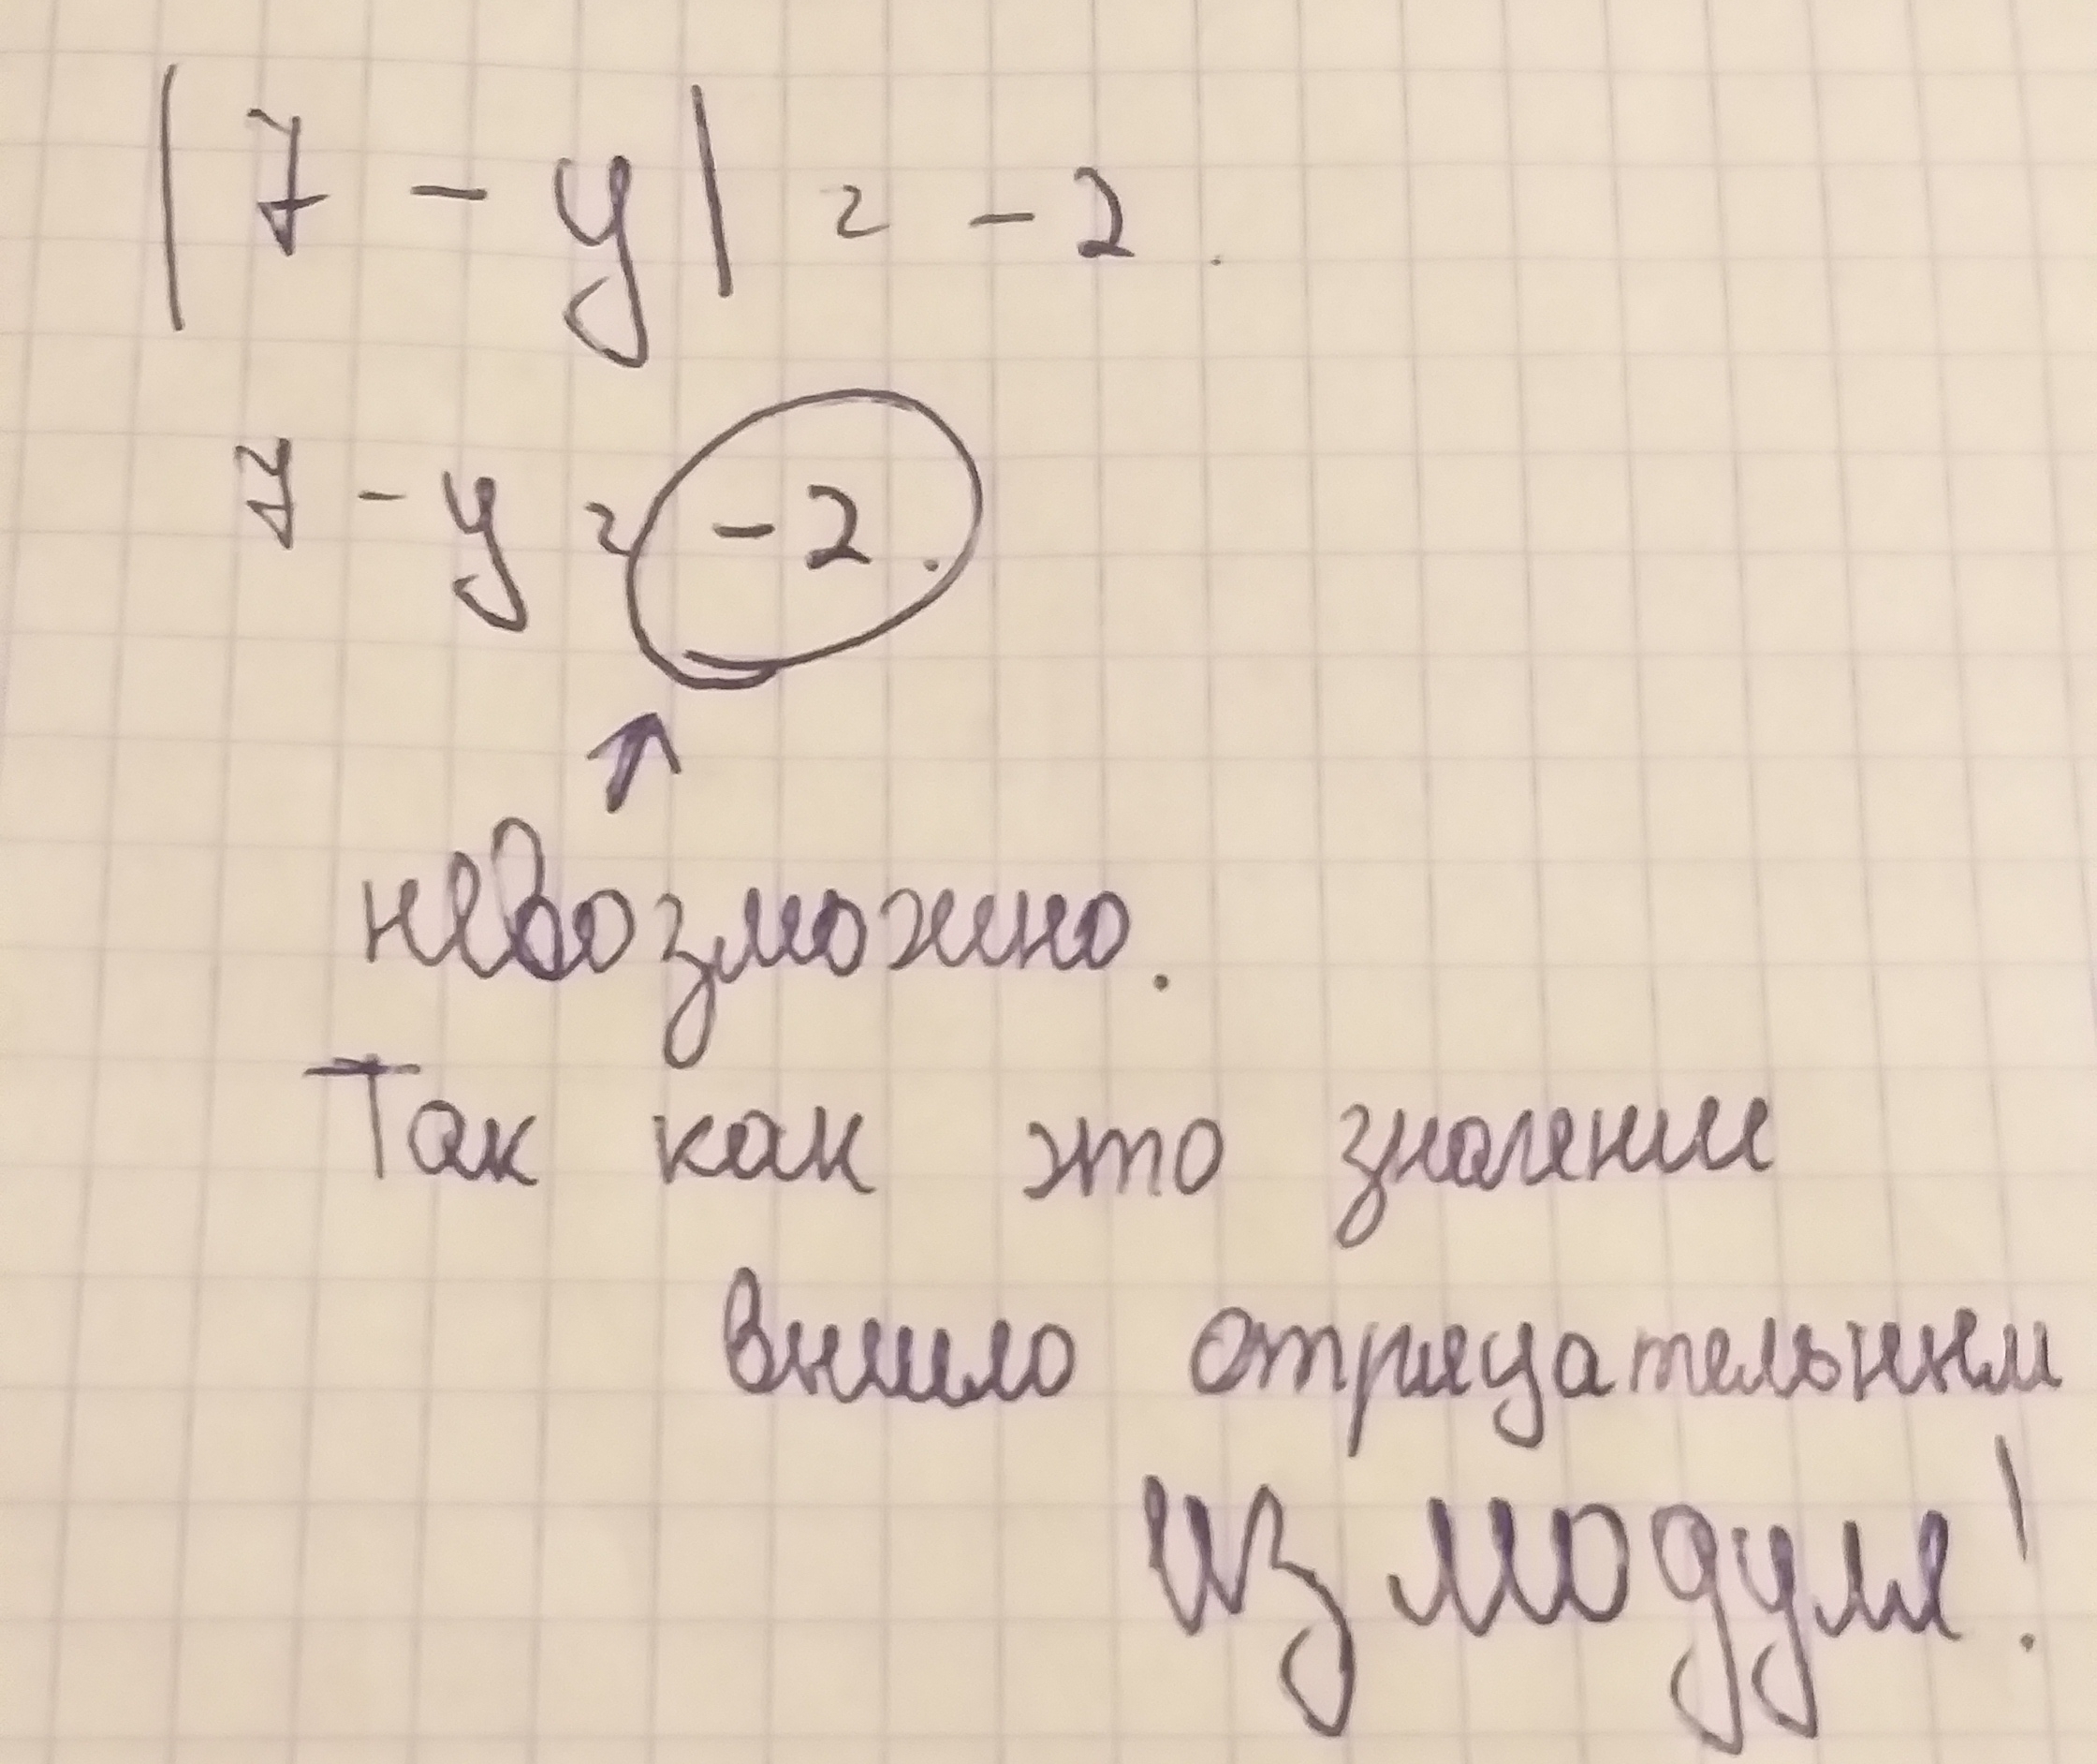 |7 - y| = -2.
7 - y = -2.
невозможно.
Так как это значение
вышло отрицательным
из модуля!